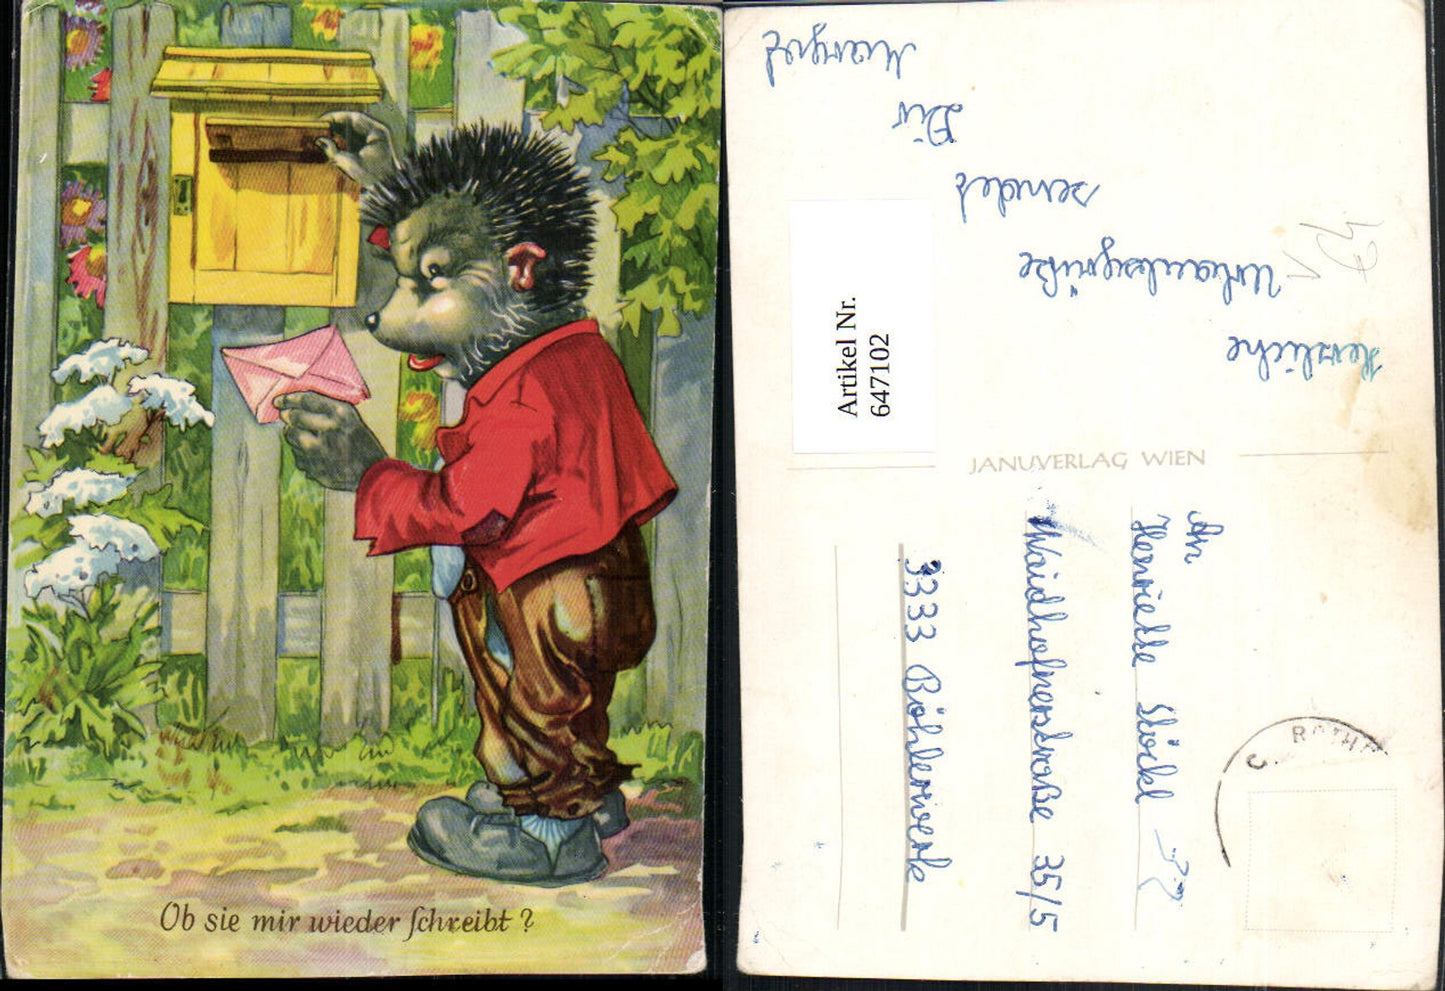 Ob sie mir wieder schreibt?
Artikel Nr.
647102
Herzliche
Urlaubsgrüße
sendet
Dir
Margret
JANUVERLAG WIEN
An
Henriette Stöckl
Waidhofnerstraße 35/5
3333 Böhlerwerk